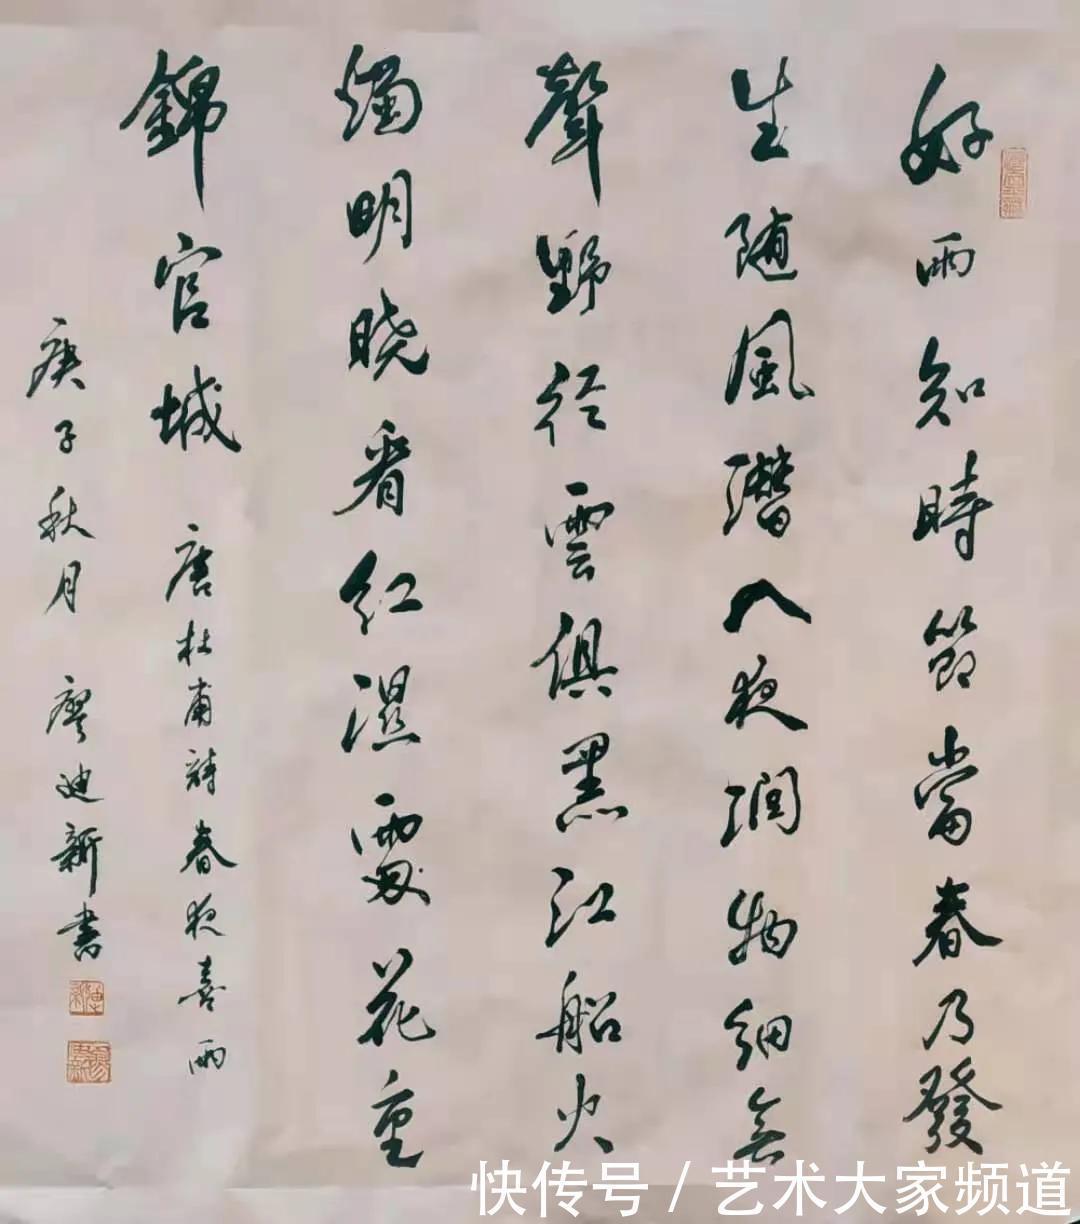 好雨知時節當春乃發
生随風潛入夜潤物細無
聲野径雲俱黑江船火
獨明晓看红濕處花重
錦官城 唐杜甫詩春夜喜雨
庚子秋月 廖迪新書
快传号 / 艺术大家频道